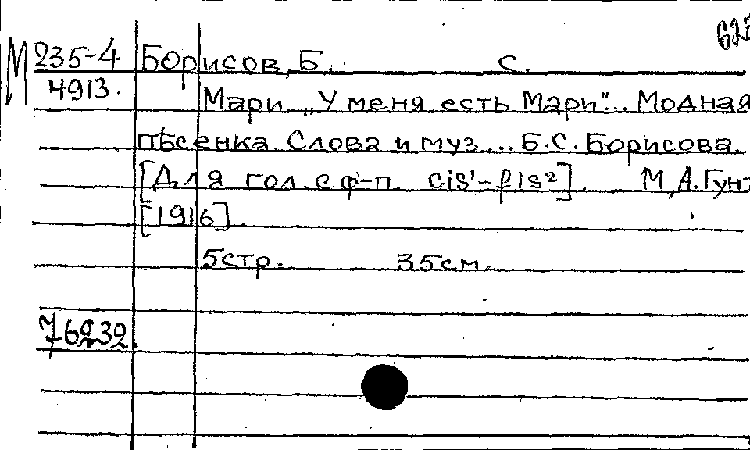 М 235-4 Борисов, Б. С.
4913. Мари „У меня есть Мари". Модная
пѣсенка. Слова и муз... Б.С. Борисова.
[Для гол. с ф-п. cis¹-fis²]. М., А. Гут
[1916].
5 стр. 35 см.
76232